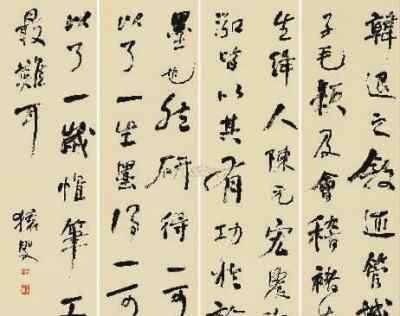 韓退之敘述管城
子毛穎及會稽褚
生絳人陳元宏農
泓皆以其有功於
墨也然研得一可
以了一生墨得一可
以了一歲惟筆工
最難耳
猨叟